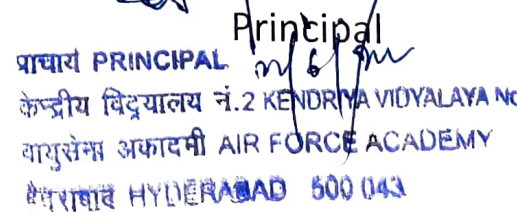 Principal
प्राचार्य PRINCIPAL
केन्द्रीय विद्यालय नं.2 KENDRIYA VIDYALAYA No
वायुसेना अकादमी AIR FORCE ACADEMY
हैदराबाद HYDERABAD 500 043